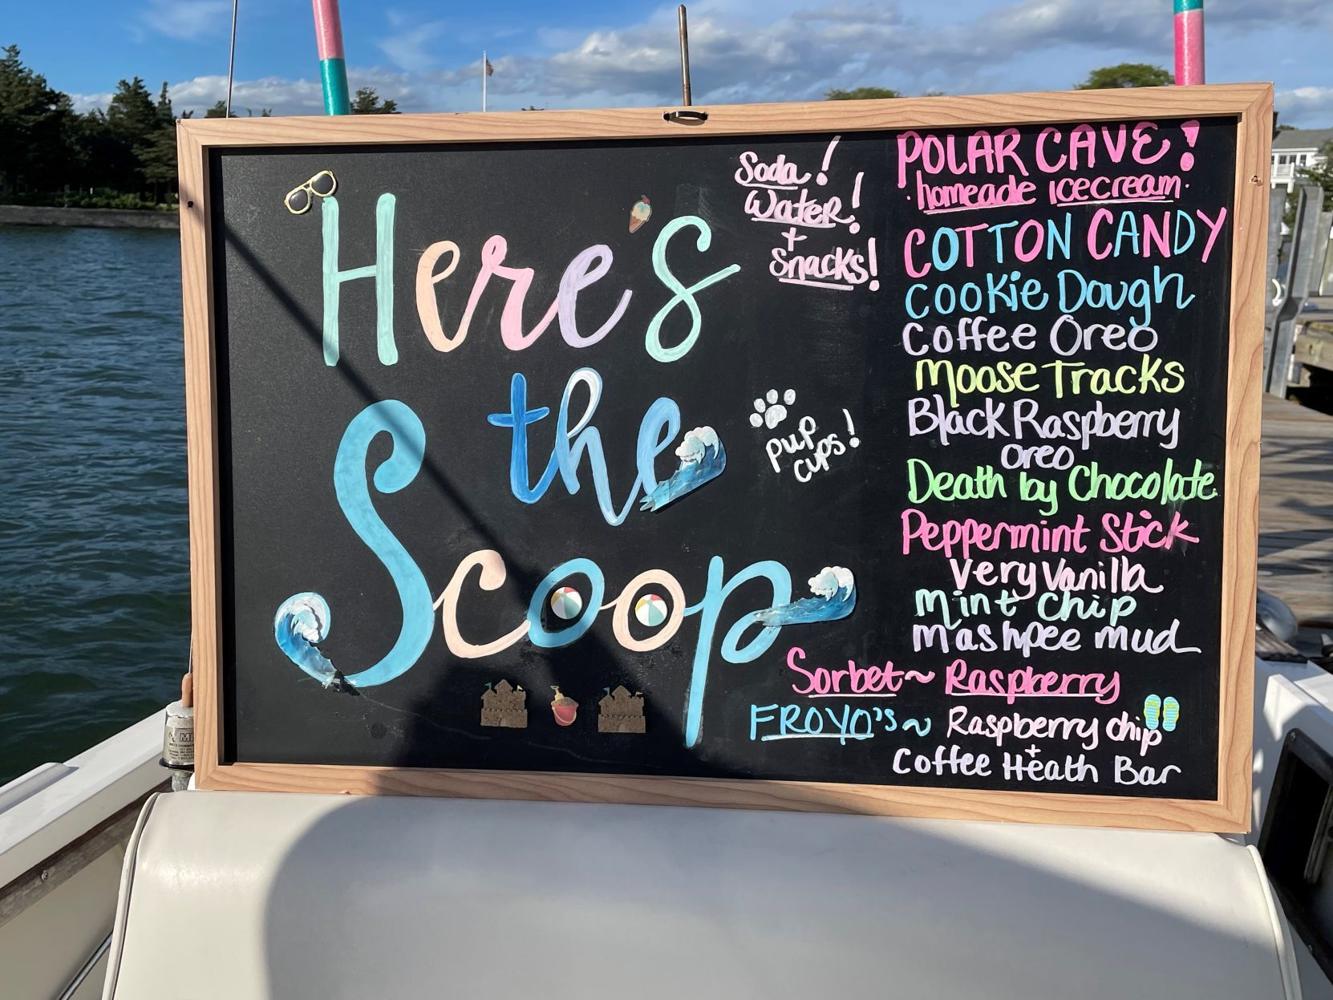 Here's
the
Scoop
Soda!
Water!
+
Snacks!
pup
cups!
POLAR CAVE!
homeade icecream.
COTTON CANDY
Cookie Dough
Coffee Oreo
Moose Tracks
Black Raspberry
oreo
Death by Chocolate
Peppermint Stick
Very Vanilla
Mint Chip
Mashpee mud
Sorbet~ Raspberry
FROYO's~ Raspberry chip
+
Coffee Heath Bar